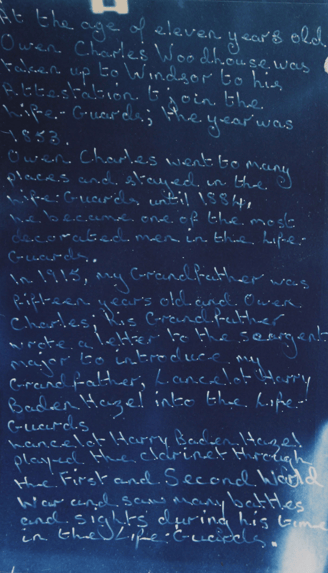 At the age of eleven years old
Owen Charles Woodhouse was
taken up to Windsor to his
Attestation to join the
Life-Guards, the year was
1853.
Owen Charles went to many
places and stayed in the
Life-Guards until 1884,
he became one of the most
decorated men in the Life-
Guards.
In 1915, my Grandfather was
fifteen years old and Owen
Charles, his Grandfather
wrote a letter to the sergent
major to introduce my
Grandfather, Lancelot Harry
Baden Hazel into the Life-
Guards
Lancelot Harry Baden Hazel
played the Clarinet through
the First and Second World
War and saw many battles
and sights during his time
in the Life-Guards.